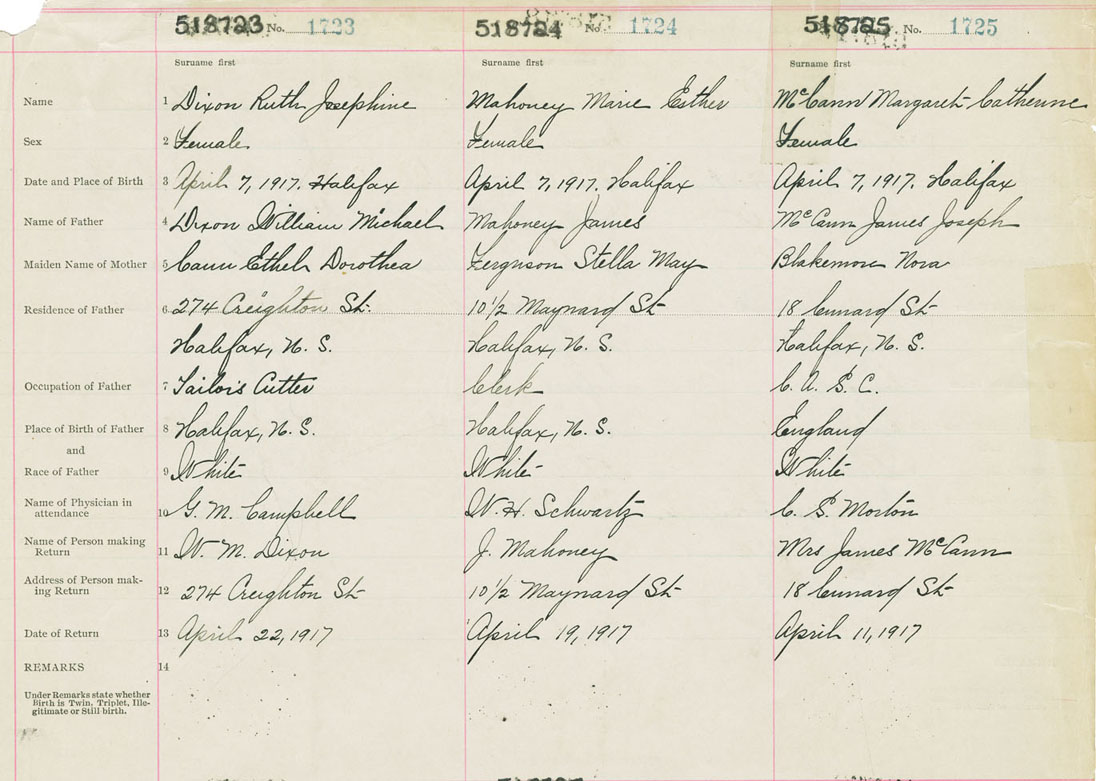 518723 No. 1723 518724 No. 1724 518725 1725
Surname first Surname first Surname first
Name 1 Dixon Ruth Josephine Mahoney Marie Esther McCann Margaret Catherine
Sex 2 Female Female Female
Date and Place of Birth 3 April 7, 1917. Halifax April 7, 1917. Halifax April 7, 1917. Halifax
Name of Father 4 Dixon William Michael Mahoney James McCann James Joseph
Maiden Name of Mother 5 Cann Ethel Dorothea Ferguson Stella May Blakemore Nora
Residence of Father 6 274 Creighton St. 10 1/2 Maynard St 18 Cunard St
Halifax, N. S. Halifax, N. S. Halifax, N. S.
Occupation of Father 7 Tailor's Cutter Clerk C. A. S. C.
Place of Birth of Father 8 Halifax, N. S. Halifax, N. S. England
and
Race of Father 9 White White White
Name of Physician in
attendance 10 G. M. Campbell W. H. Schwartz C. S. Morton
Name of Person making
Return 11 W. M. Dixon J. Mahoney Mrs James McCann
Address of Person mak-
ing Return 12 274 Creighton St 10 1/2 Maynard St 18 Cunard St
Date of Return 13 April 22, 1917 April 19, 1917 April 11, 1917
REMARKS 14
Under Remarks state whether
Birth is Twin, Triplet, Ille-
gitimate or Still birth.